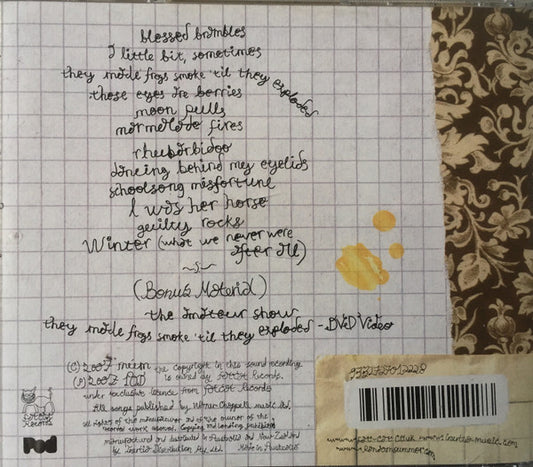 blessed brambles
A little bit, sometimes
they made frogs smoke 'til they exploded
these eyes are berries
moon pulls
marmalade fires
rhuubarbidoo
dancing behind my eyelids
schoolsong misfortune
I was her horse
guilty rocks
Winter (what we never were
after all)
(Bonus Material)
the amateur show
they made frogs smoke 'til they exploded - DVD Video
(C) 2007 múm the copyright in this sound recording
(P) 2007 is owned by FatCat Records.
under exclusive licence from FatCat Records
All songs published by Warner-Chappell music ltd.
all rights of the manufacturer and of the owner of the
recorded work reserved. Copying and lending prohibited
manufactured and distributed in Australia and New Zealand
by Inertia Distribution Pty Ltd. Made in Australia
FatCat
Records
www.fat-cat.co.uk www.inertia-music.com